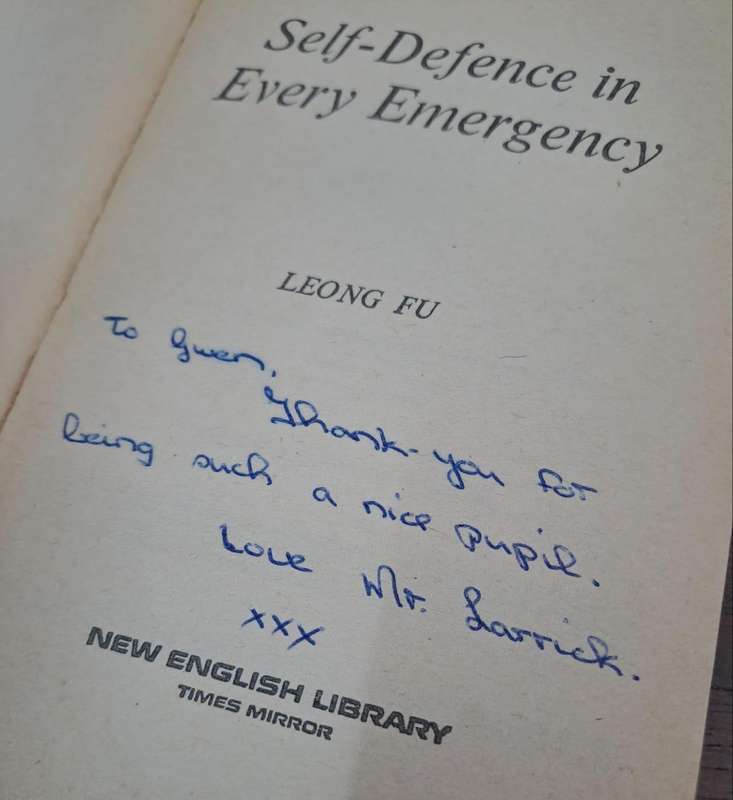 Self-Defence in
Every Emergency
LEONG FU
To Gwen,
Thank-you for
being such a nice pupil.
Love Mr. Larrick.
xxx
NEW ENGLISH LIBRARY
TIMES MIRROR